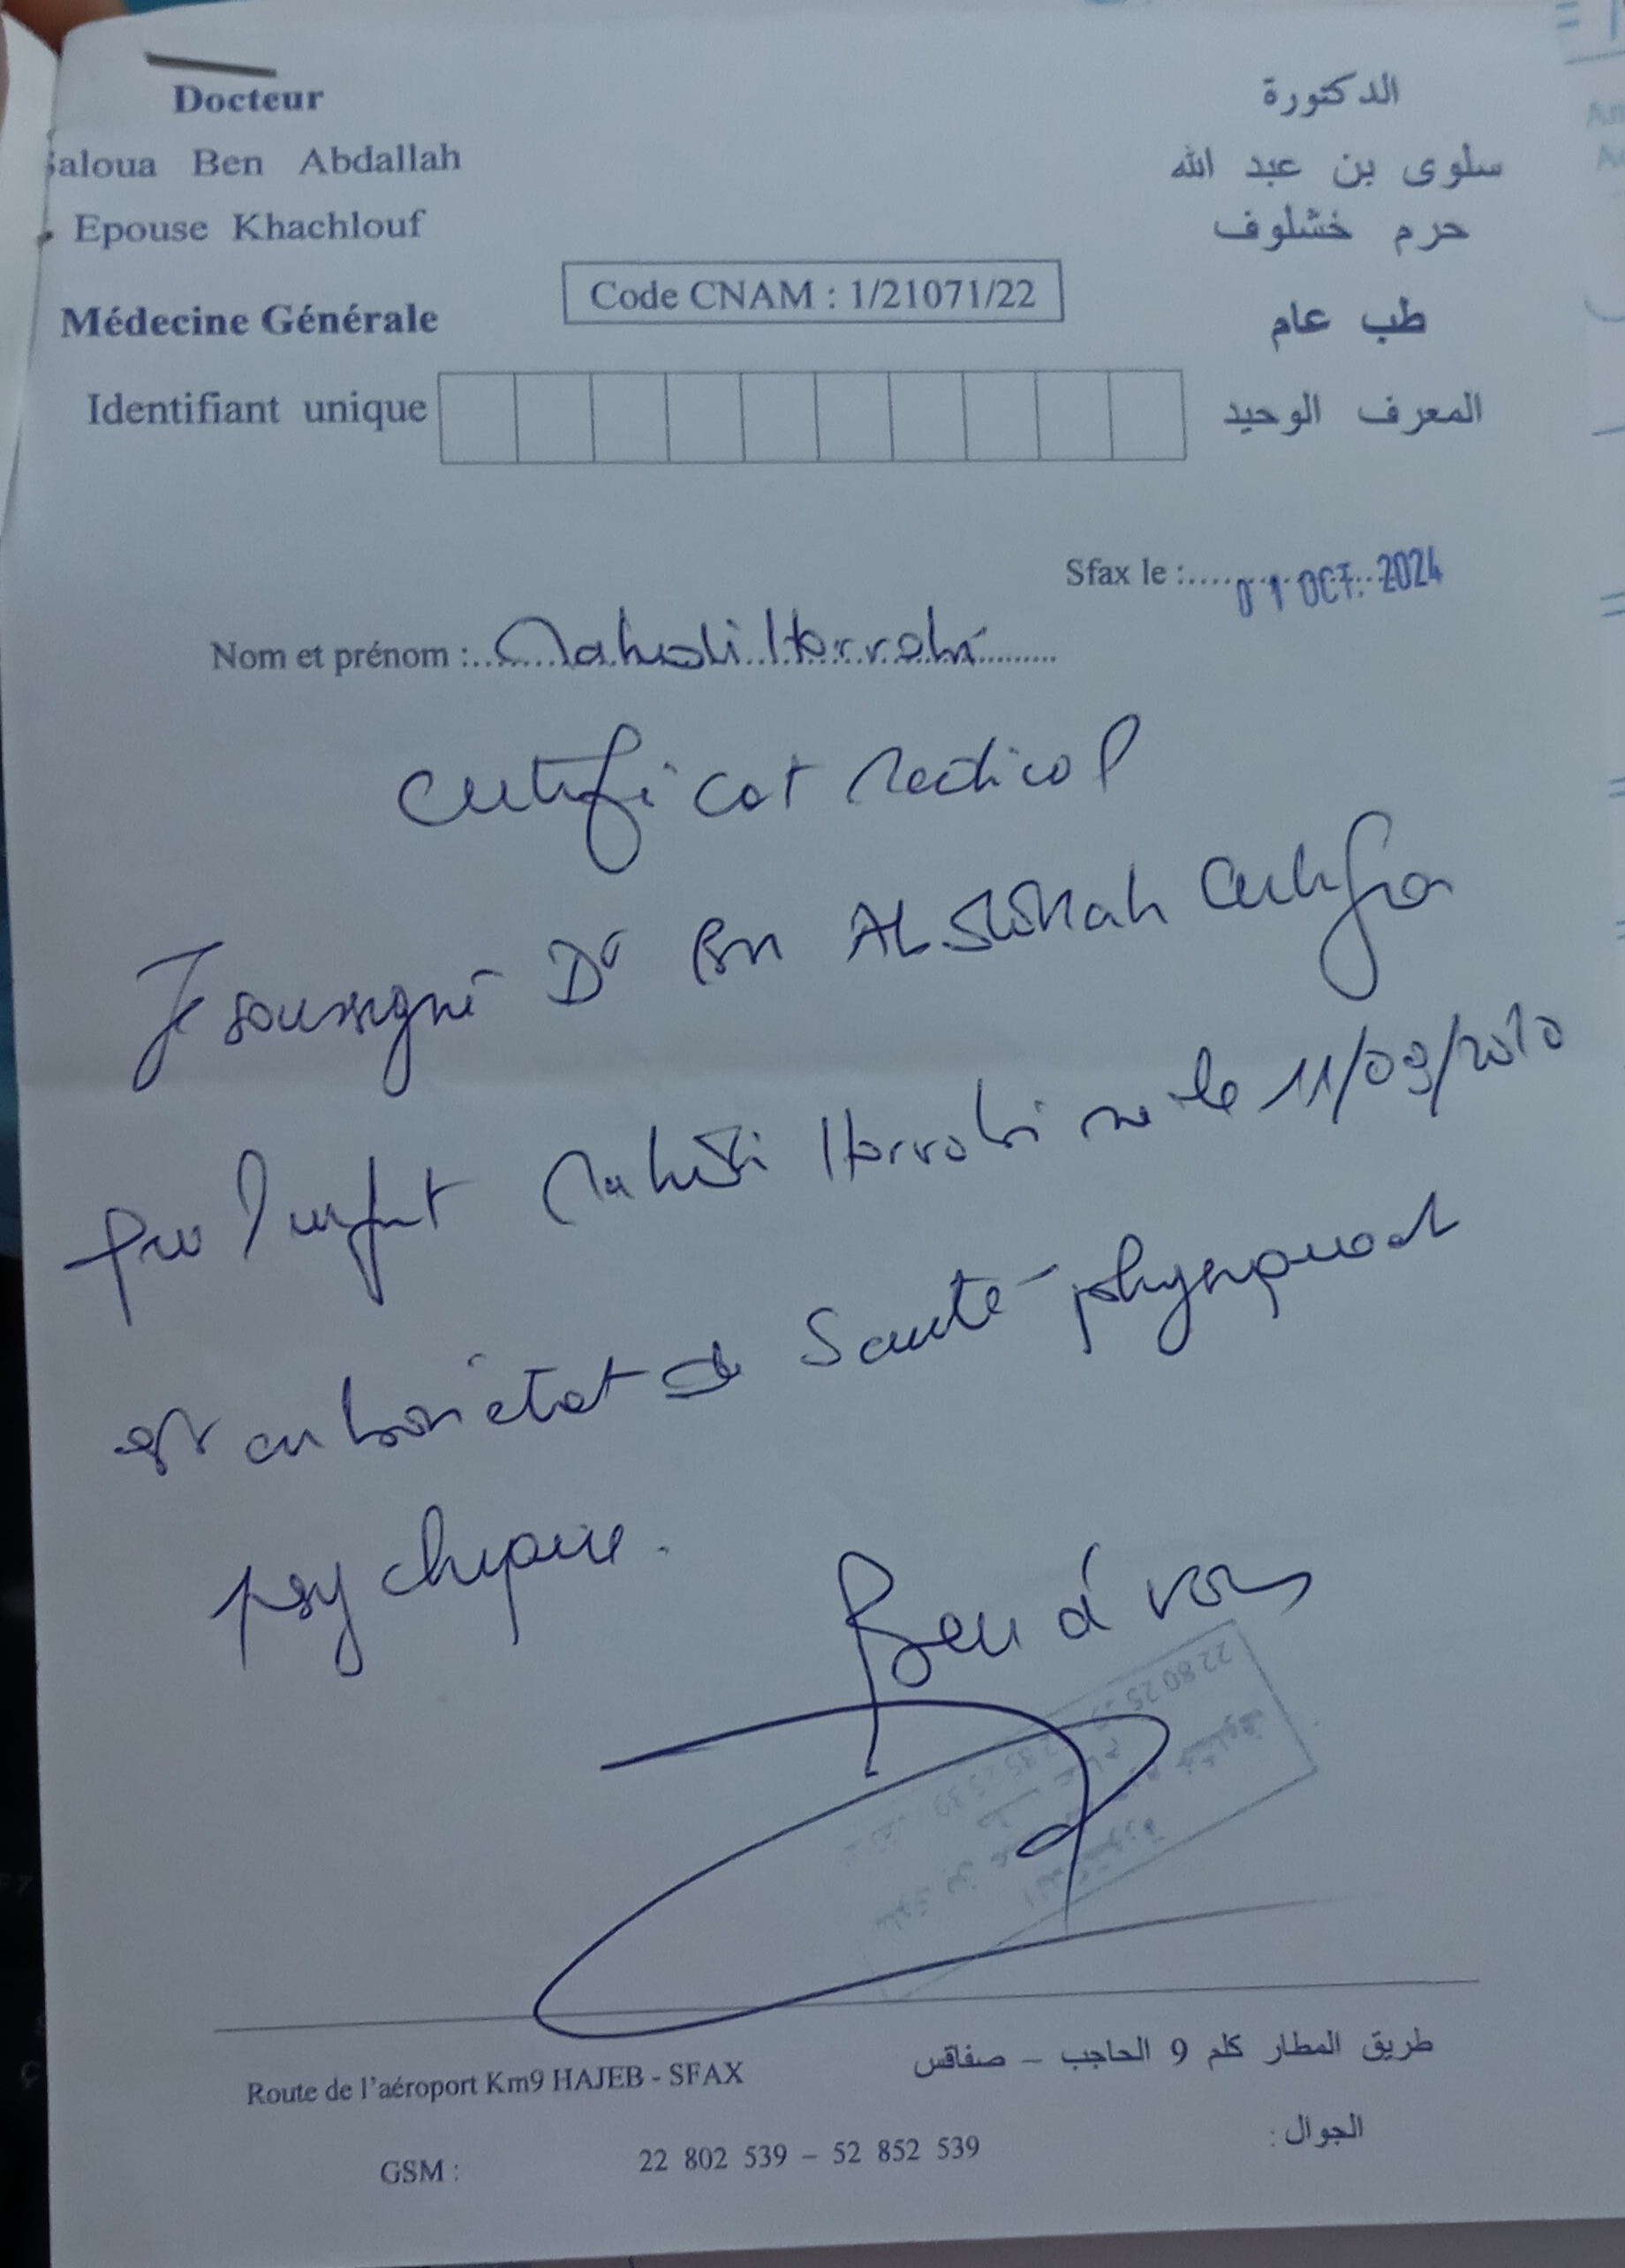 Docteur
Saloua Ben Abdallah
Epouse Khachlouf
Médecine Générale
الدكتورة
سلوى بن عبد الله
حرم خشلوف
طب عام
Code CNAM : 1/21071/22
Identifiant unique
المعرف الوحيد
Sfax le : 01 OCT. 2024
Nom et prénom : Mahdi Harrabi
Certificat Medical
Je soussigné Dr Ben Abdallah certifie
que l'enfant Mahdi Harrabi né le 11/09/2010
est en bon état de Santé physique et
psychique.
à vous
طريق المطار كلم 9 الحاجب – صفاقس
Route de l'aéroport Km9 HAJEB - SFAX
الجوال :
GSM : 22 802 539 – 52 852 539